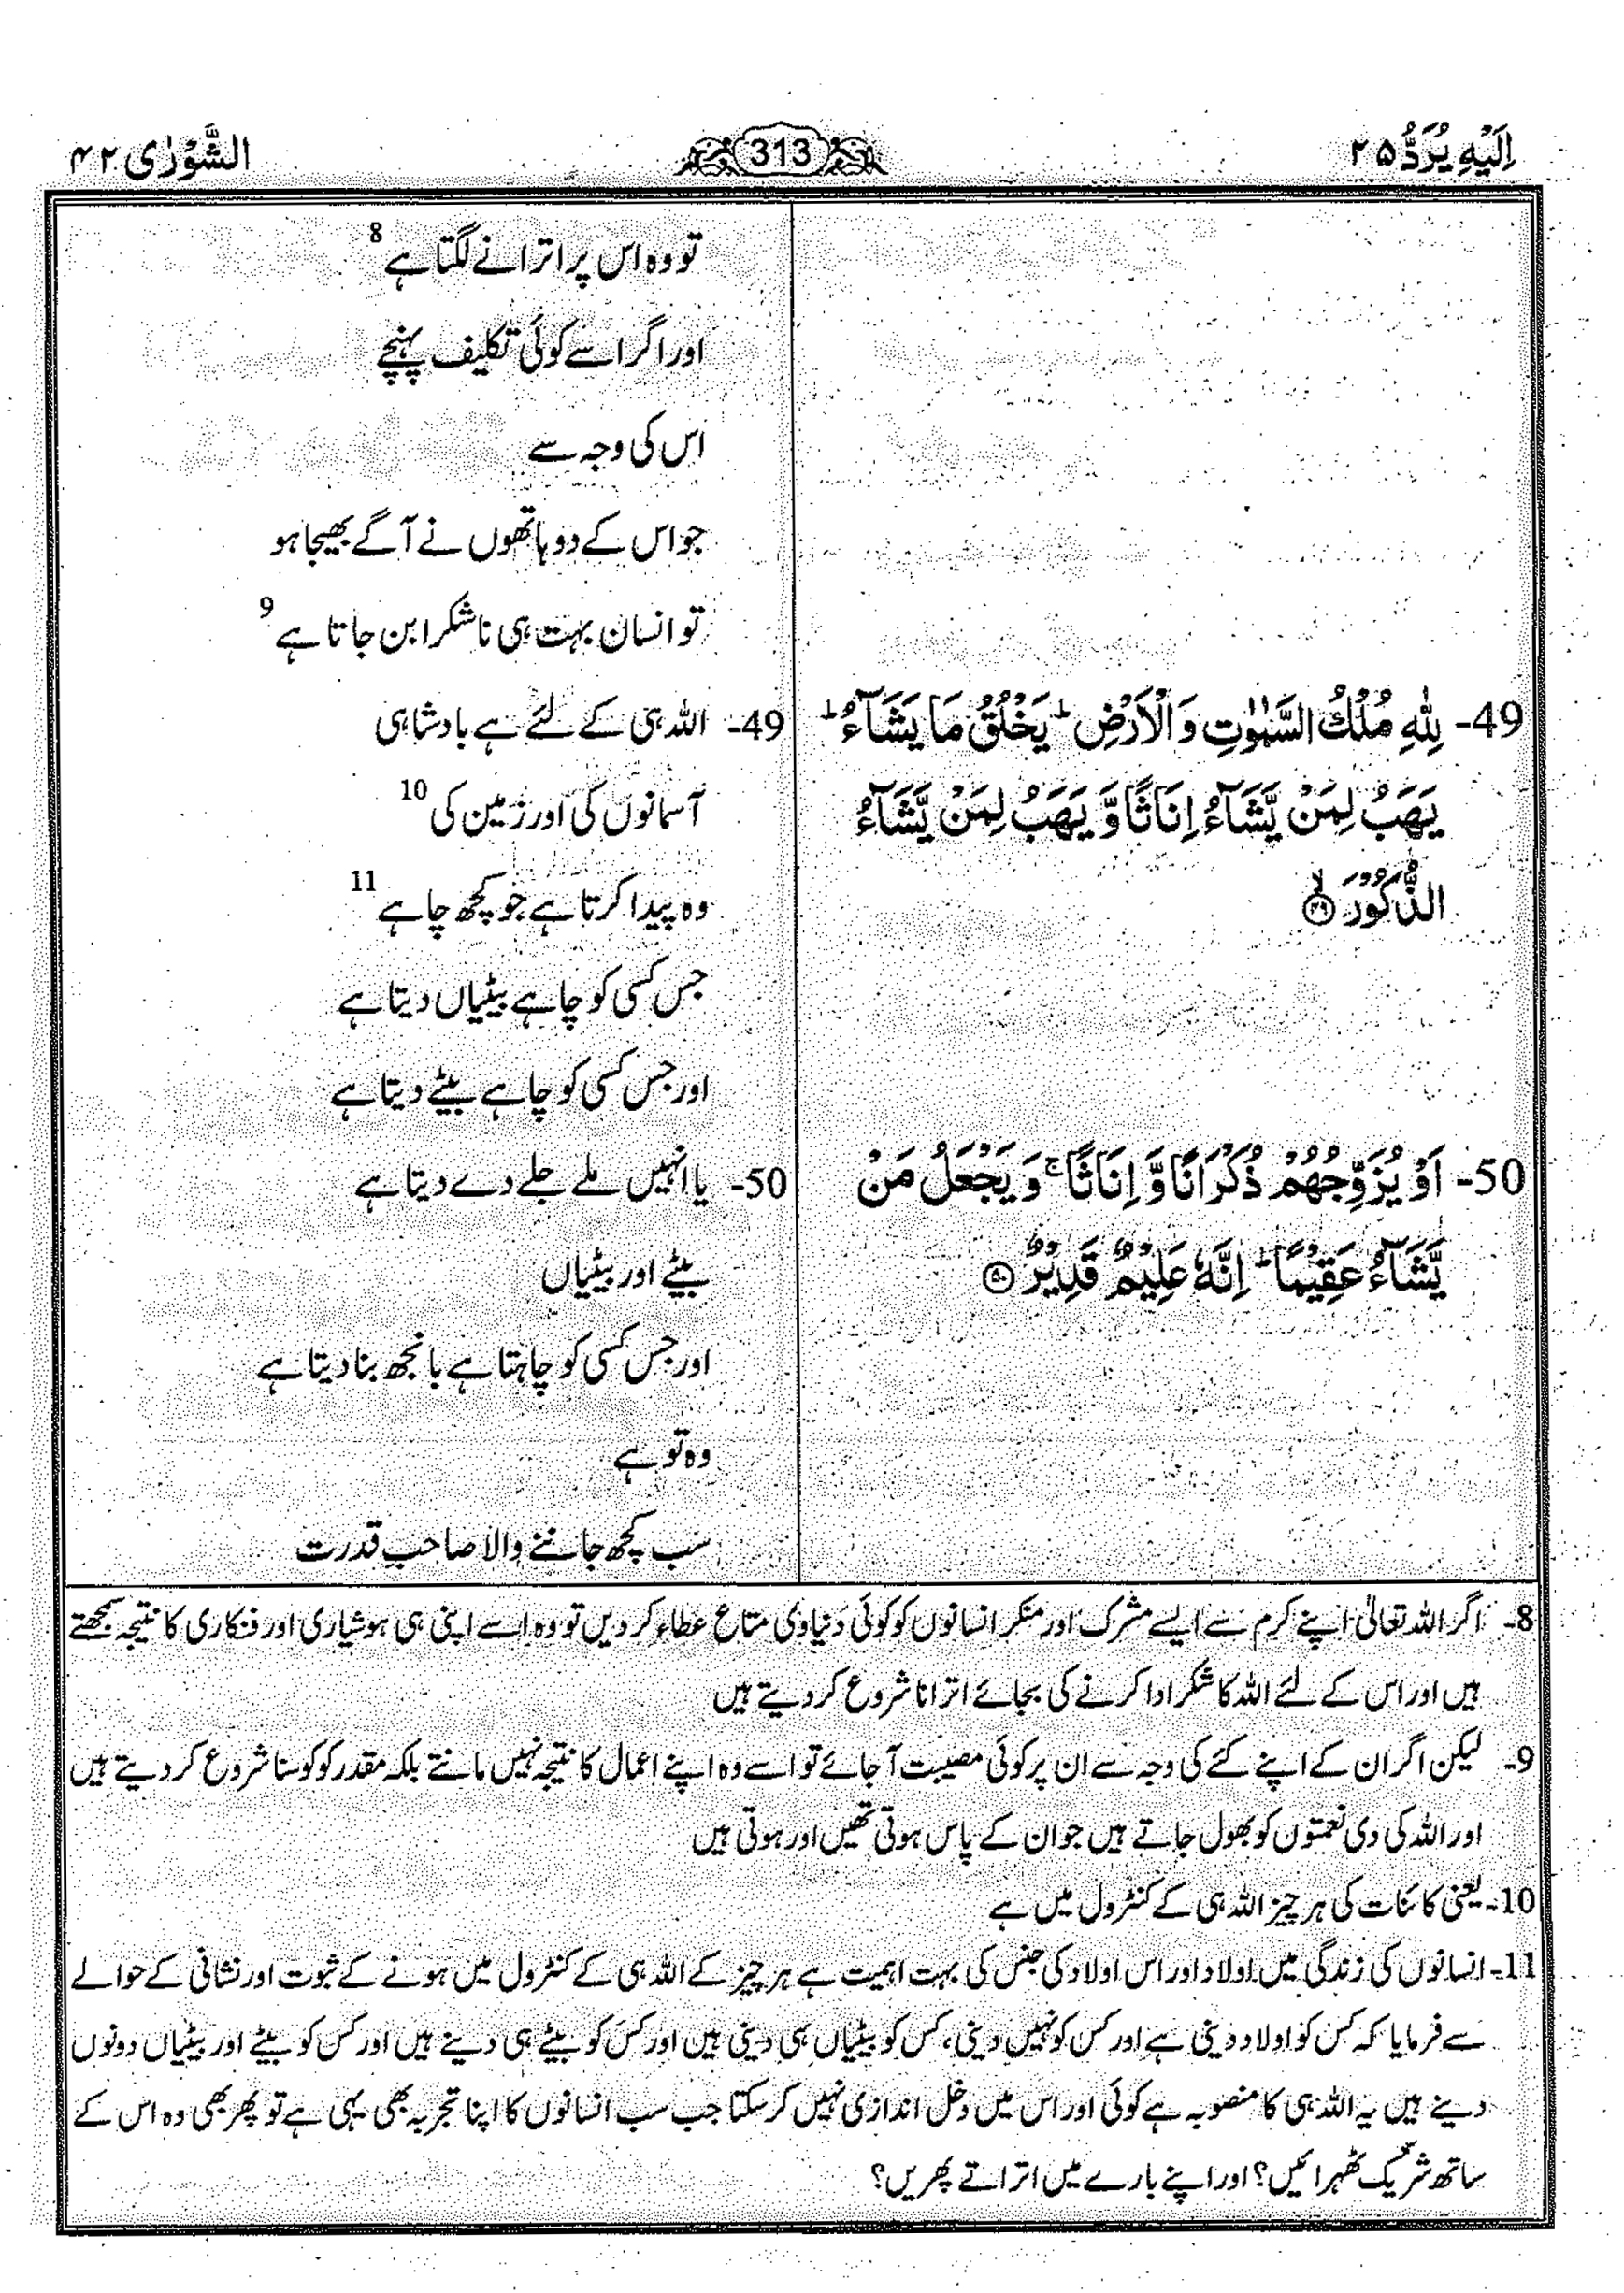 اِلَیْهِ یُرَدُّ ۲۵
313
الشُّوْرٰی ۴۲
تو وہ اس پر اترانے لگتا ہے 8
اور اگر اسے کوئی تکلیف پہنچے
اس کی وجہ سے
جو اس کے دو ہاتھوں نے آگے بھیجا ہو
تو انسان بہت ہی ناشکرا بن جاتا ہے 9
49- لِلّٰهِ مُلْكُ السَّمٰوٰتِ وَ الْاَرْضِ ؕ یَخْلُقُ مَا یَشَآءُ ؕ
یَهَبُ لِمَنْ یَّشَآءُ اِنَاثًا وَّ یَهَبُ لِمَنْ یَّشَآءُ
الذُّكُوْرَ ۙ ﴿۴۹﴾
49- اللہ ہی کے لئے ہے بادشاہی
آسمانوں کی اور زمین کی 10
وہ پیدا کرتا ہے جو کچھ چاہے 11
جس کسی کو چاہے بیٹیاں دیتا ہے
اور جس کسی کو چاہے بیٹے دیتا ہے
50- اَوْ یُزَوِّجُهُمْ ذُكْرَانًا وَّ اِنَاثًا ۚ وَ یَجْعَلُ مَنْ
یَّشَآءُ عَقِیْمًا ؕ اِنَّهٗ عَلِیْمٌ قَدِیْرٌ ﴿۵۰﴾
50- یا انہیں ملے جلے دے دیتا ہے
بیٹے اور بیٹیاں
اور جس کسی کو چاہتا ہے بانجھ بنا دیتا ہے
وہ تو ہے
سب کچھ جاننے والا صاحبِ قدرت
8- اگر اللہ تعالیٰ اپنے کرم سے ایسے مشرک اور منکر انسانوں کو کوئی دنیاوی متاع عطاء کر دیں تو وہ اسے اپنی ہی ہوشیاری اور فنکاری کا نتیجہ سمجھتے
ہیں اور اس کے لئے اللہ کا شکر ادا کرنے کی بجائے اترانا شروع کر دیتے ہیں
9- لیکن اگر ان کے اپنے کئے کی وجہ سے ان پر کوئی مصیبت آ جائے تو اسے وہ اپنے اعمال کا نتیجہ نہیں مانتے بلکہ مقدر کو کوسنا شروع کر دیتے ہیں
اور اللہ کی دی نعمتوں کو بھول جاتے ہیں جو ان کے پاس ہوتی تھیں اور ہوتی ہیں
10- یعنی کائنات کی ہر چیز اللہ ہی کے کنٹرول میں ہے
11- انسانوں کی زندگی میں اولاد اور اس اولاد کی جنس کی بہت اہمیت ہے ہر چیز کے اللہ ہی کے کنٹرول میں ہونے کے ثبوت اور نشانی کے حوالے
سے فرمایا کہ کس کو اولاد دینی ہے اور کس کو نہیں دینی، کس کو بیٹیاں ہی دینی ہیں اور کس کو بیٹے ہی دینے ہیں اور کس کو بیٹے اور بیٹیاں دونوں
دینے ہیں یہ اللہ ہی کا منصوبہ ہے کوئی اور اس میں دخل اندازی نہیں کر سکتا جب سب انسانوں کا اپنا تجربہ بھی یہی ہے تو پھر بھی وہ اس کے
ساتھ شریک ٹھہرائیں؟ اور اپنے بارے میں اتراتے پھریں؟